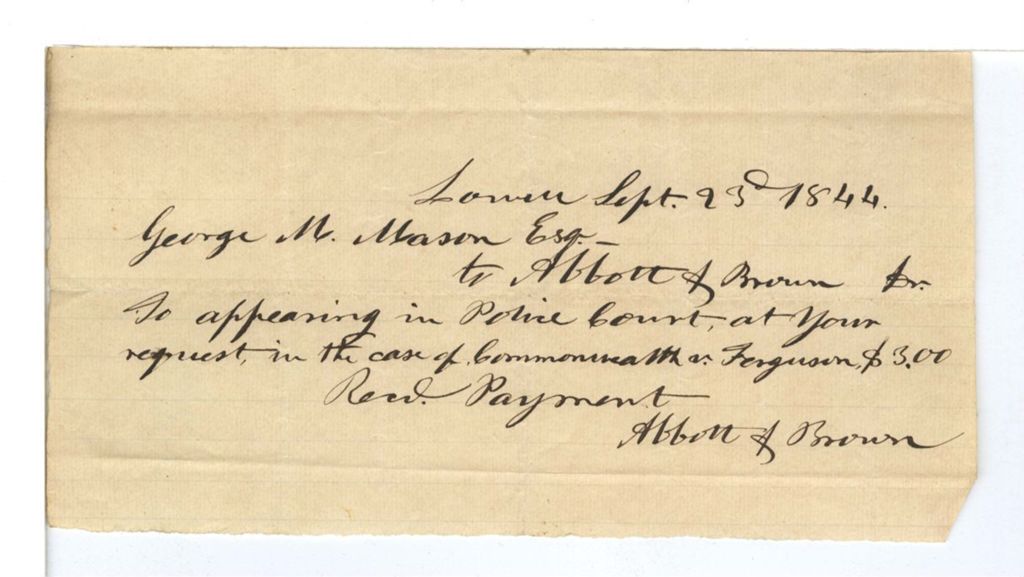 Lowell Sept. 23d 1844.
George M. Mason Esq.
to Abbott & Brown Dr.
To appearing in Police Court, at your
request, in the case of Commonwealth v. Ferguson, $3.00
Recd. Payment
Abbott & Brown